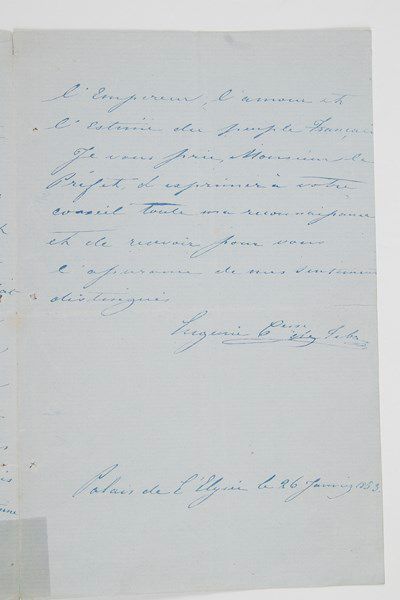 l'Empereur, l'amour et
l'estime du peuple Français
Je vous prie, Monsieur le
Préfet, d'exprimer à votre
conseil toute ma reconnaissance
et de recevoir pour vous
l'assurance de mes sentimens
distingués
Eugénie Csse de Teba
Palais de l'Elysée le 26 Janvier 1853